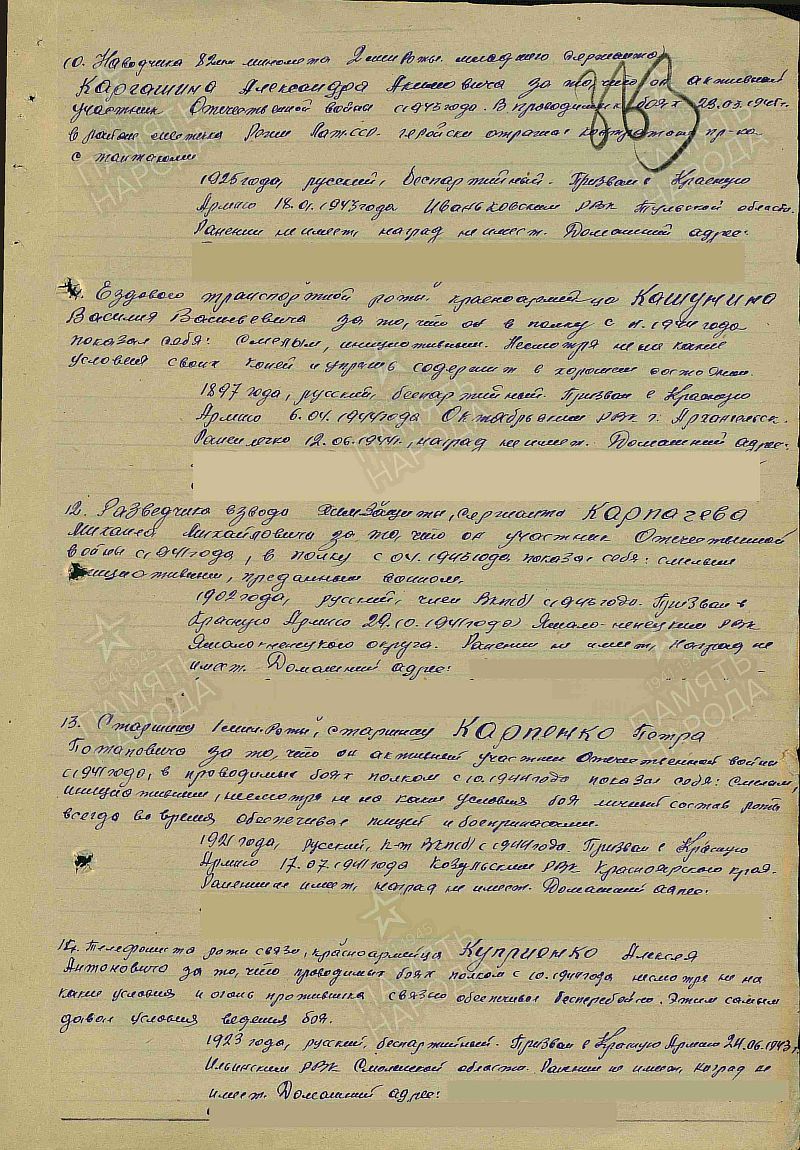 10. Наводчика 82мм миномета 2 мин роты младшего сержанта
Каргашина Александра Акимовича за то, что он активный
участник Отечественной войны с 1943 года. В проводимых боях 23.03.1945г.
в районе местечка Латв.ССР геройски отражал контратаки пр-ка
с танками
363
1925 года, русский, беспартийный. Призван в Красную
Армию 18.01.1943 года Иваньковским РВК Тульской области.
Ранений не имеет, наград не имеет. Домашний адрес:
11. Ездового транспортной роты красноармейца Кашунина
Василия Васильевича за то, что он в полку с 11.1944 года
показал себя: смелым, инициативным. Несмотря не на какие
условия своих коней и упряжь содержит в хорошем состоянии.
1897 года, русский, беспартийный. Призван в Красную
Армию 6.04.1944 года Октябрьским РВК г. Архангельск.
Ранен легко 12.06.1944г., наград не имеет. Домашний адрес:
12. Разведчика взвода химзащиты, сержанта Карпачева
Михаила Михайловича за то, что он участник Отечественной
войны с 1941 года, в полку с 04.1943 года показал себя: смелым
инициативным, преданным воином.
1902 года, русский, член ВКП(б) с 1943 года. Призван в
Красную Армию 29.10.1941 года Ямало-ненецким РВК
Ямало-ненецкого округа. Ранений не имеет, наград не
имеет. Домашний адрес:
13. Старшину 1 мин. роты, старшину Карпенко Петра
Потаповича за то, что он активный участник Отечественной войны
с 1941 года, в проводимых боях полком с 10.1944 года показал себя: смелым,
инициативным, несмотря не на какие условия боя личный состав роты
всегда во время обеспечивал пищей и боеприпасами.
1921 года, русский, к-т ВКП(б) с 1944 года. Призван в Красную
Армию 17.07.1941 года Козульским РВК Красноярского края.
Ранений не имеет, наград не имеет. Домашний адрес:
14. Телефониста роты связи, красноармейца Куприенко Алексея
Антоновича за то, что проводимых боях полком с 10.1944 года несмотря не на
какие условия и огонь противника связью обеспечивал бесперебойно. Этим самым
давал условия ведения боя.
1923 года, русский, беспартийный. Призван в Красную Армию 24.06.1943г.
Ильинским РВК Смоленской области. Ранений не имеет, наград не
имеет. Домашний адрес:
ПАМЯТЬ НАРОДА
1941-1945